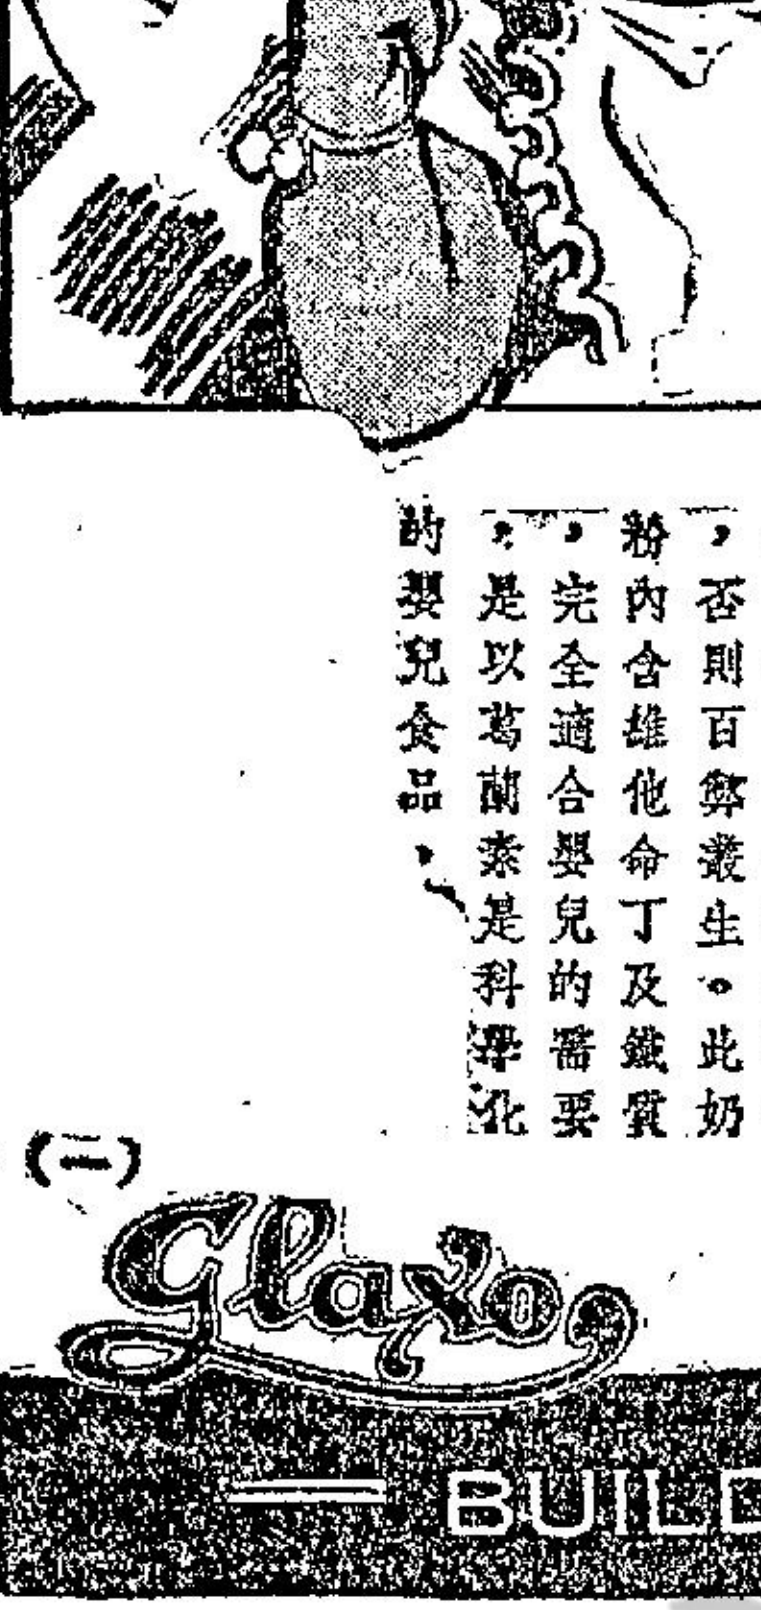 ，否則百弊叢生。此奶
粉內含維他命丁及鐵質
，完全適合嬰兒的需要
，是以葛蘭素是科學化
的嬰兒食品，
(一)
Glaxo
— BUILD